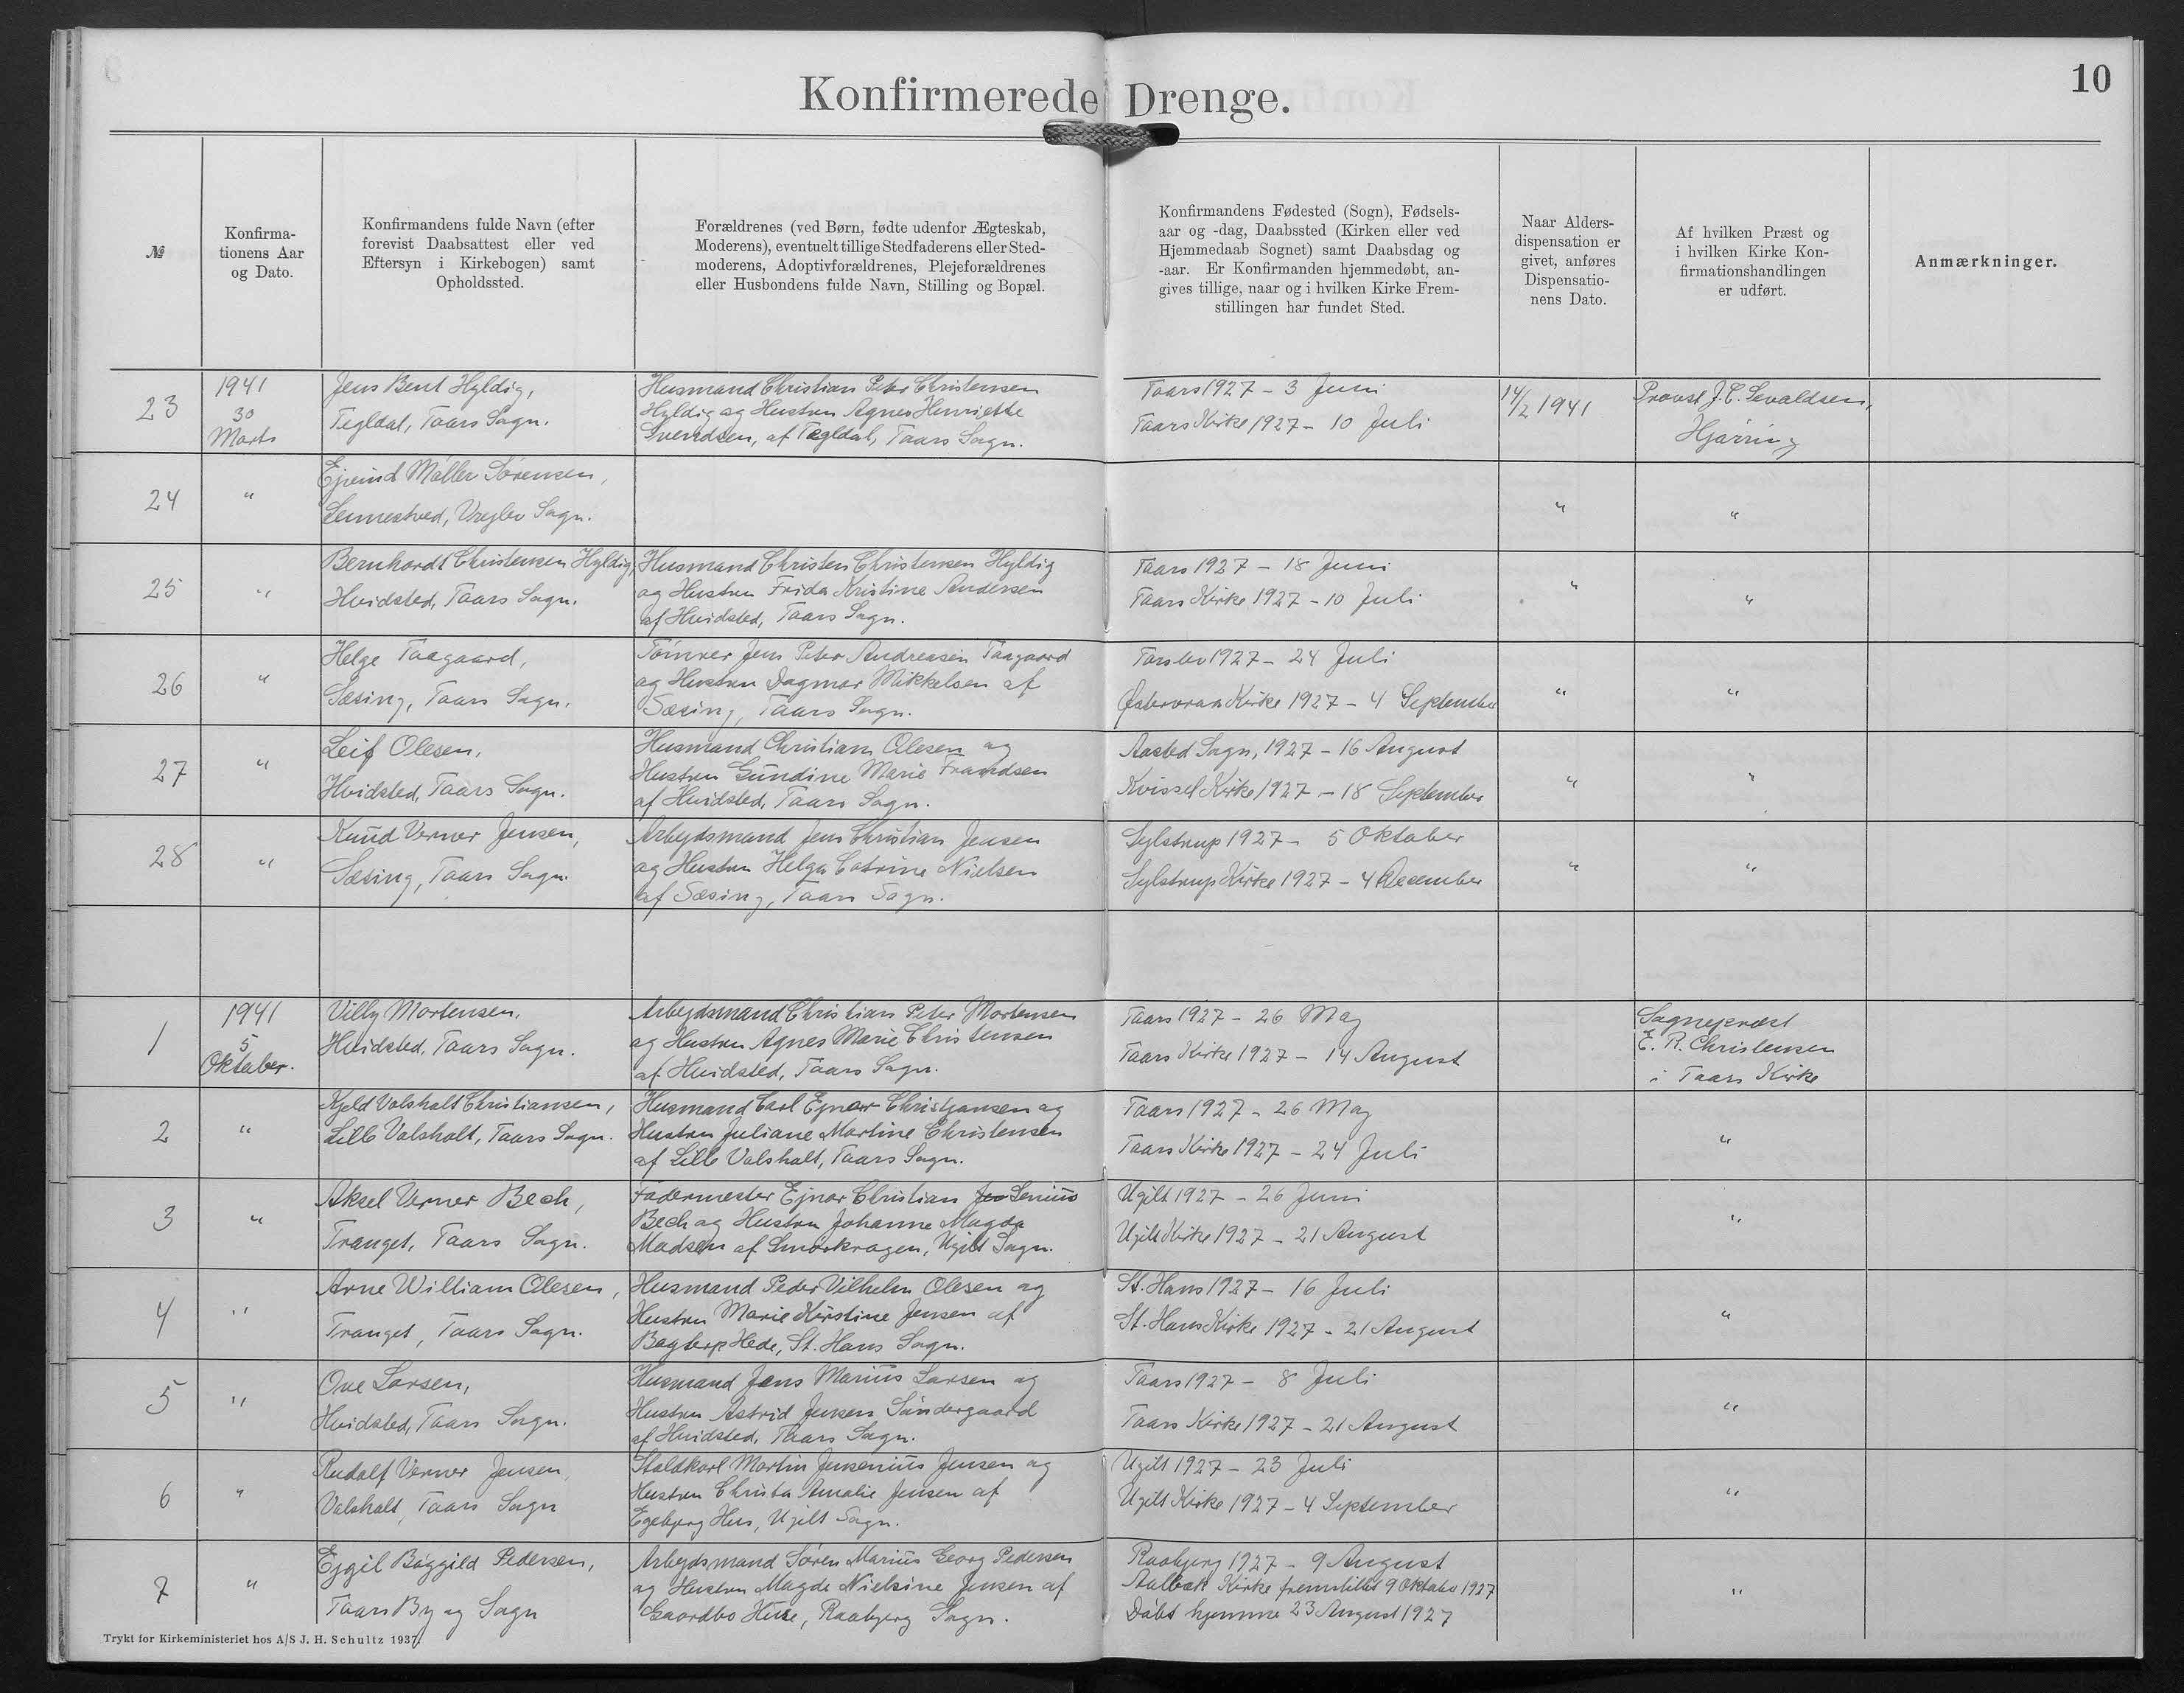 Konfirmerede Drenge.
10
№
Konfirma-
tionens Aar
og Dato.
Konfirmandens fulde Navn (efter
forevist Daabsattest eller ved
Eftersyn i Kirkebogen) samt
Opholdssted.
Forældrenes (ved Børn, fødte udenfor Ægteskab,
Moderens), eventuelt tillige Stedfaderens eller Sted-
moderens, Adoptivforældrenes, Plejeforældrenes
eller Husbondens fulde Navn, Stilling og Bopæl.
Konfirmandens Fødested (Sogn), Fødsels-
aar og -dag, Daabssted (Kirken eller ved
Hjemmedaab Sognet) samt Daabsdag og
-aar. Er Konfirmanden hjemmedøbt, an-
gives tillige, naar og i hvilken Kirke Frem-
stillingen har fundet Sted.
Naar Alders-
dispensation er
givet, anføres
Dispensatio-
nens Dato.
Af hvilken Præst og
i hvilken Kirke Kon-
firmationshandlingen
er udført.
Anmærkninger.
23
1941
30
Marts
Jens Bent Hyldig,
Tegldal, Taars Sogn.
Husmand Christian Peter Christensen
Hyldig og Hustru Agnes Henriette
Svendsen, af Tegldal, Taars Sogn.
Taars 1927 - 3 Juni
Taars Kirke 1927 - 10 Juli
14/2 1941
Provst J. C. Sevaldsen,
Hjørring
24
"
Ejvind Møller Sørensen,
Sennestved, Vrejlev Sogn.
"
"
25
"
Bernhardt Christensen Hyldig,
Hvidsted, Taars Sogn.
Husmand Christen Christensen Hyldig
og Hustru Frida Kristine Andersen
af Hvidsted, Taars Sogn.
Taars 1927 - 18 Juni
Taars Kirke 1927 - 10 Juli
"
"
26
"
Helge Taagaard,
Sæsing, Taars Sogn.
Tømrer Jens Peter Andreasen Taagaard
og Hustru Dagmar Mikkelsen af
Sæsing, Taars Sogn.
Torslev 1927 - 24 Juli
Østervraa Kirke 1927 - 4 September
"
"
27
"
Leif Olesen,
Hvidsted, Taars Sogn.
Husmand Christian Olesen og
Hustru Gundine Marie Frandsen
af Hvidsted, Taars Sogn.
Aasted Sogn, 1927 - 16 August
Kvissel Kirke 1927 - 18 September
"
"
28
"
Knud Verner Jensen,
Sæsing, Taars Sogn.
Arbejdsmand Jens Christian Jensen
og Hustru Helga Catrine Nielsen
af Sæsing, Taars Sogn.
Sejlstrup 1927 - 5 Oktober
Sejlstrup Kirke 1927 - 4 December
"
"
1
1941
5
Oktober.
Villy Mortensen,
Hvidsted, Taars Sogn.
Arbejdsmand Christian Peter Mortensen
og Hustru Agnes Marie Christensen
af Hvidsted, Taars Sogn.
Taars 1927 - 26 Maj
Taars Kirke 1927 - 14 August
Sognepræst
E. R. Christensen
i Taars Kirke
2
"
Kjeld Valsholt Christiansen,
Lille Valsholt, Taars Sogn.
Husmand Carl Ejnar Christjansen og
Hustru Juliane Martine Christensen
af Lille Valsholt, Taars Sogn.
Taars 1927 - 26 Maj
Taars Kirke 1927 - 24 Juli
"
3
"
Aksel Verner Bech,
Tranget, Taars Sogn.
Fodermester Ejnar Christian Senius
Bech og Hustru Johanne Magda
Madsen af Smørkragen, Ugilt Sogn.
Ugilt 1927 - 26 Juni
Ugilt Kirke 1927 - 21 August
"
4
"
Arne William Olesen,
Tranget, Taars Sogn.
Husmand Peder Vilhelm Olesen og
Hustru Marie Kirstine Jensen af
Bagterp Hede, St. Hans Sogn.
St. Hans 1927 - 16 Juli
St. Hans Kirke 1927 - 21 August
"
5
"
Ove Larsen,
Hvidsted, Taars Sogn.
Husmand Jens Marius Larsen og
Hustru Astrid Jensen Søndergaard
af Hvidsted, Taars Sogn.
Taars 1927 - 8 Juli
Taars Kirke 1927 - 21 August
"
6
"
Rudolf Verner Jensen,
Valsholt, Taars Sogn
Staldkarl Martin Jensenius Jensen og
Hustru Christa Amalie Jensen af
Egebjerg Hus, Ugilt Sogn.
Ugilt 1927 - 23 Juli
Ugilt Kirke 1927 - 4 September
"
7
"
Ejgil Bøggild Pedersen,
Taars By og Sogn
Arbejdsmand Søren Marius Georg Pedersen
og Hustru Magde Nielsine Jensen af
Gaardbo Huse, Raabjerg Sogn.
Raabjerg 1927 - 9 August
Aalbæk Kirke fremstillet 9 Oktober 1927
Døbt hjemme 23 August 1927
"
Trykt for Kirkeministeriet hos A/S J. H. Schultz 1937.